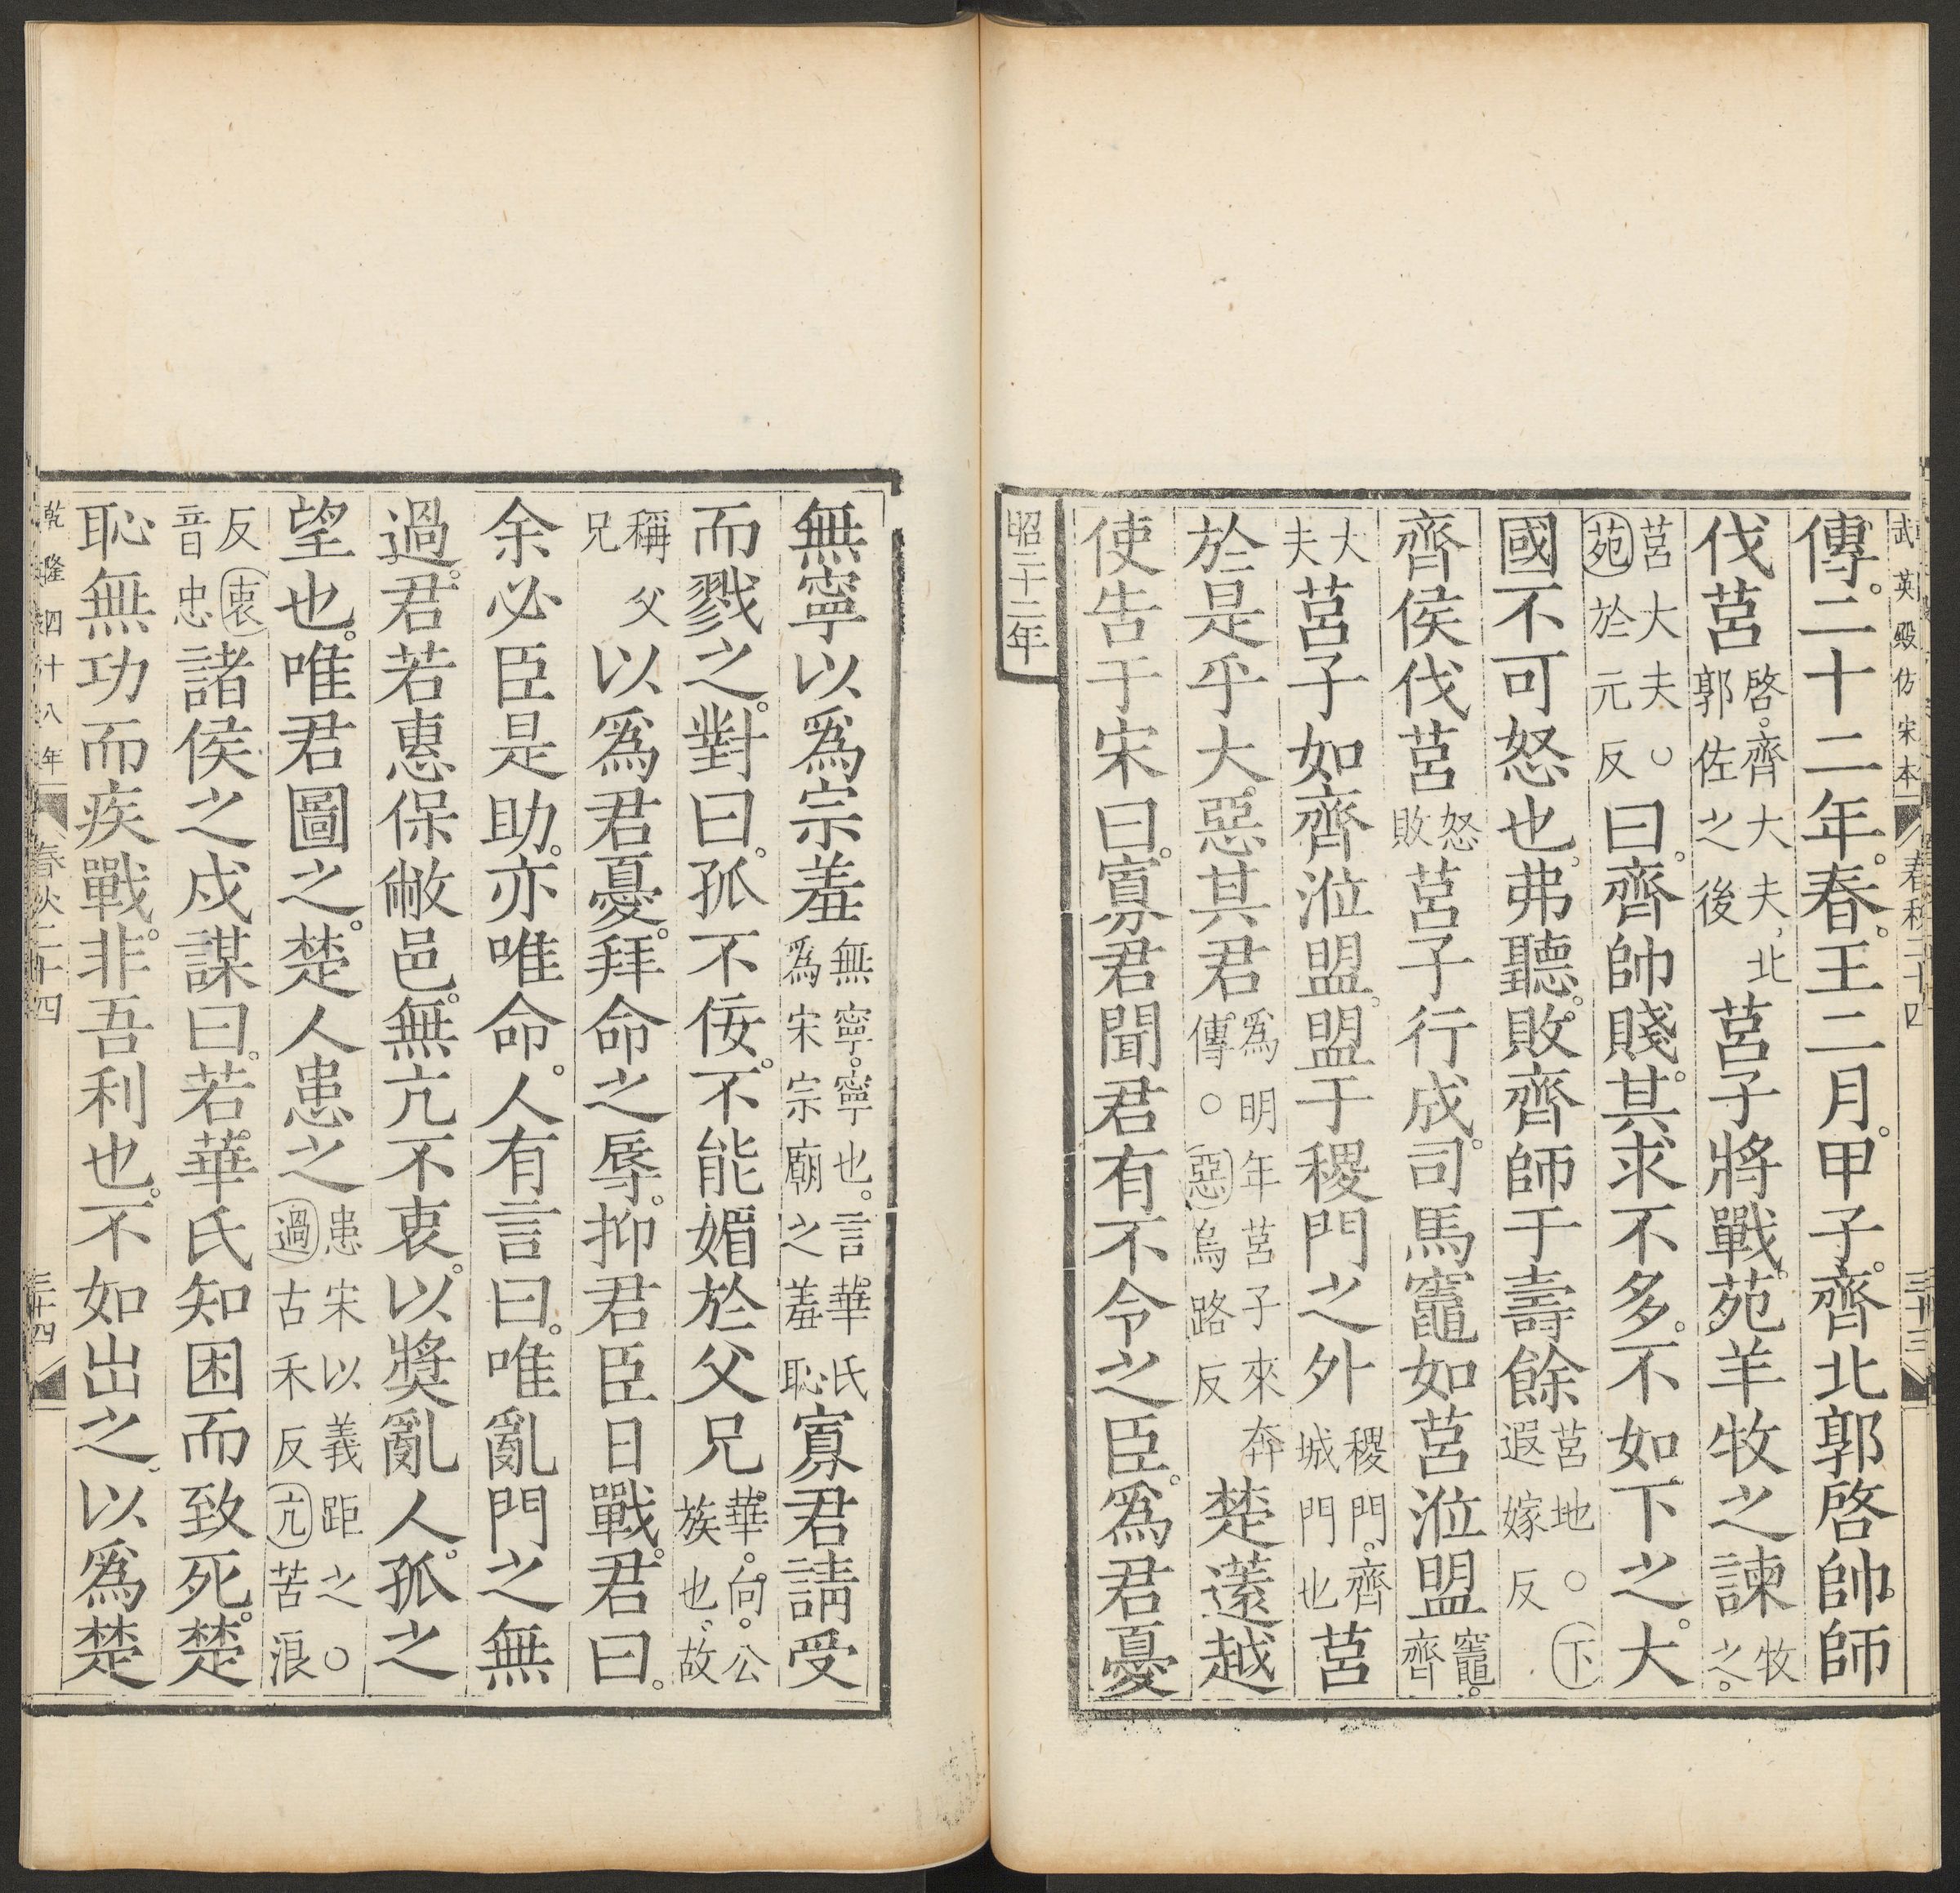 武英殿仿宋本 春秋二十四 三十三
傳二十二年春王二月甲子齊北郭啓帥師
伐莒啓齊大夫北郭佐之後莒子將戰苑羊牧之諫牧之
莒大夫○苑於元反曰齊帥賤其求不多不如下之大
國不可怒也弗聽敗齊師于壽餘莒地○下遐嫁反
齊侯伐莒怒敗莒子行成司馬竈如莒涖盟竈齊
大夫莒子如齊涖盟盟于稷門之外稷門齊城門也莒
於是乎大惡其君爲明年莒子來奔傳○惡烏路反楚薳越
使告于宋曰寡君聞君有不令之臣爲君憂
昭二十二年
無寧以爲宗羞無寧寧也言華氏爲宋宗廟之羞恥寡君請受
而戮之對曰孤不佞不能媚於父兄華向公族也故
稱父兄以爲君憂拜命之辱抑君臣日戰君曰
余必臣是助亦唯命人有言曰唯亂門之無
過君若惠保敝邑無亢不衷以奬亂人孤之
望也唯君圖之楚人患之患宋以義距之○過古禾反亢苦浪
反衷音忠諸侯之戍謀曰若華氏知困而致死楚
恥無功而疾戰非吾利也不如出之以爲楚
乾隆四十八年 春秋二十四 三十四